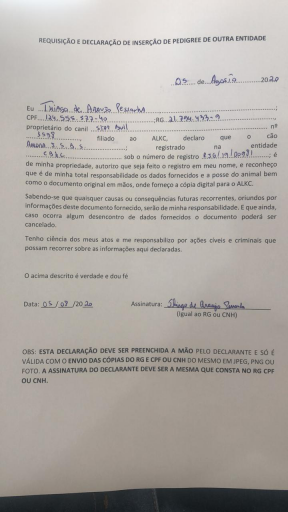 REQUISIÇÃO E DECLARAÇÃO DE INSERÇÃO DE PEDIGREE DE OUTRA ENTIDADE
05 de Agosto 2020
Eu Thiago de Araujo
CPF 124.555.577-40 ;RG 21.794.433-9
proprietário do canil nº
3498 , filiado ao ALKC, declaro que o cão
registrado na entidade
CBKC sob o número de registro é
de minha propriedade, autorizo que seja feito o registro em meu nome, e reconheço
que é de minha total responsabilidade os dados fornecidos e a posse do animal bem
como o documento original em mãos, onde forneço a cópia digital para o ALKC.
Sabendo-se que quaisquer causas ou consequências futuras recorrentes, oriundos por
informações deste documento fornecido, serão de minha responsabilidade. E que ainda,
caso ocorra algum desencontro de dados fornecidos o documento poderá ser
cancelado.
Tenho ciência dos meus atos e me responsabilizo por ações cíveis e criminais que
possam recorrer sobre as informações aqui declaradas.
O acima descrito é verdade e dou fé
Data: 05 / 08 /2020 Assinatura: Thiago de Araujo
(igual ao RG ou CNH)
OBS: ESTA DECLARAÇÃO DEVE SER PREENCHIDA A MÃO PELO DECLARANTE E SÓ É
VÁLIDA COM O ENVIO DAS CÓPIAS DO RG E CPF OU CNH DO MESMO EM JPEG, PNG OU
FOTO. A ASSINATURA DO DECLARANTE DEVE SER A MESMA QUE CONSTA NO RG CPF
OU CNH.